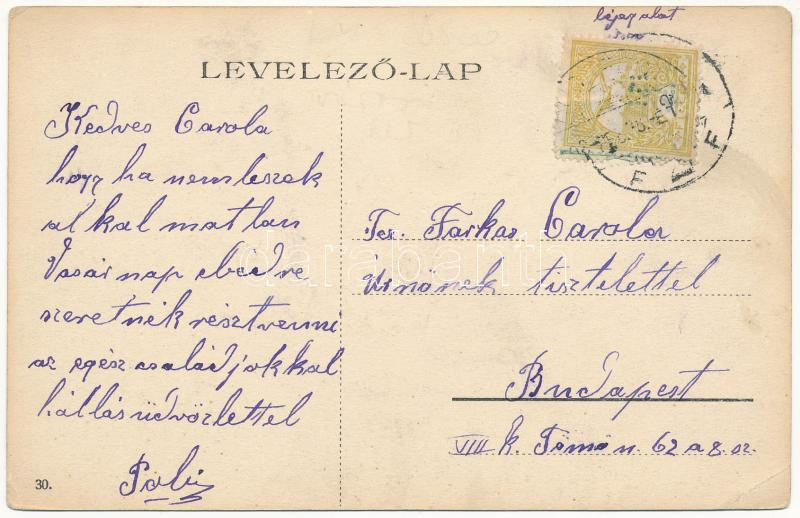 bélyeg alatt
LEVELEZŐ-LAP
Kedves Carola
hogy ha nem leszek
alkalmatlan
Vasárnap ebédre
szeretnék résztvenni
az egész családjokkal
hállás üdvözlettel
Pali
30.
Tes. Farkas Carola
Úrnőnek tisztelettel
Budapest
VIII k. Tömö u. 62 a 8. sz.
darabanth